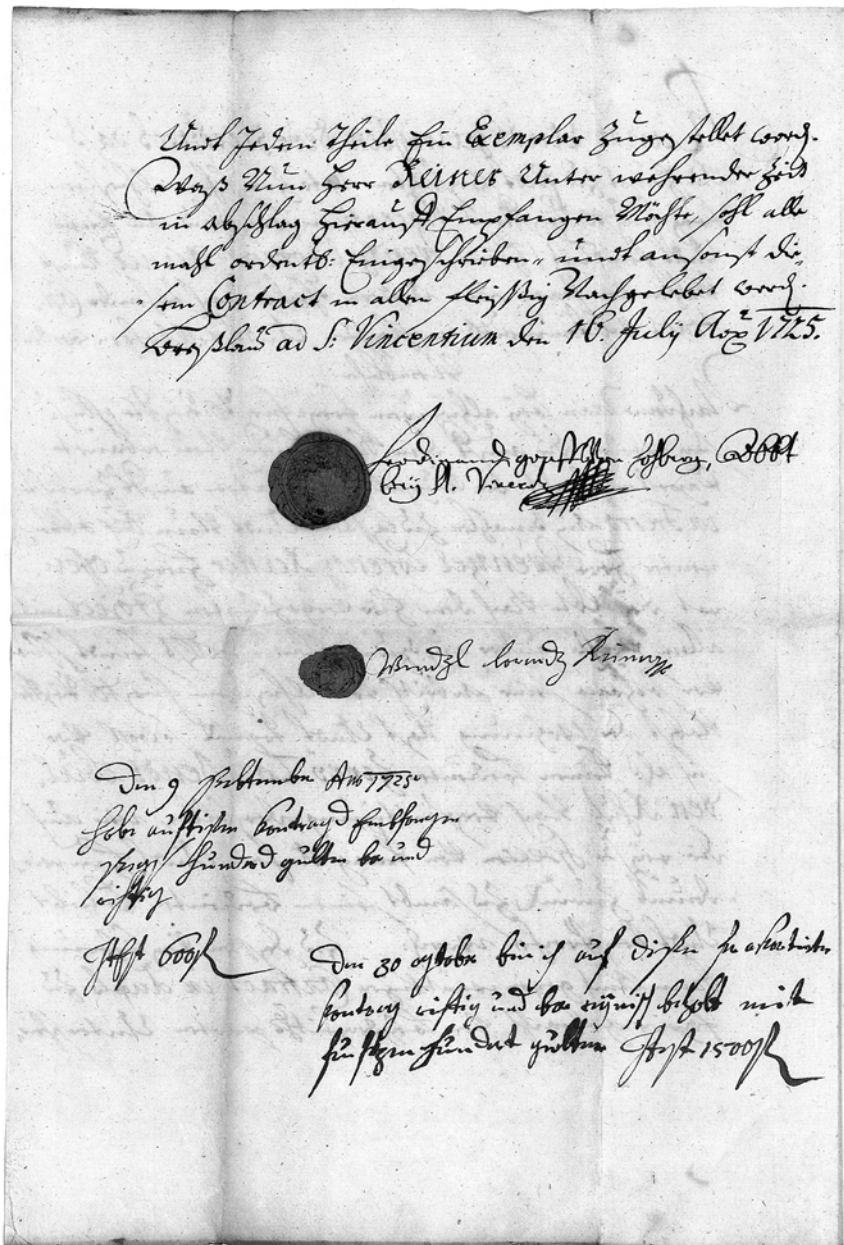 Undt Jedem Theile Ein Exemplar Zugestellet werd.
Waß Nun Herr Reiner Unter wehrender Zeit
in abschlag hierauf Empfangen Möchte, sohl alle
mahl ordentl: Eingeschrieben- undt ansonst die-
sem Contract in allem fleissig Nachgelebet werd.
Breßlau ad S: Vincentium den 16. July Aõ 1725.
Ferdinand Hochberg, Abbt
bey St. Vincentz
Wendzl lorendz
Den 9 September Ano 1725
habe auf disen kontrackd Embfangen
sexs hunderd gulten bar und
richtig
Ist 600 fl
Den 30 octobr bin ich auf disen
kontrackt richtig und bar bezalt mit
funfzen hundert gulten Ist 1500 fl